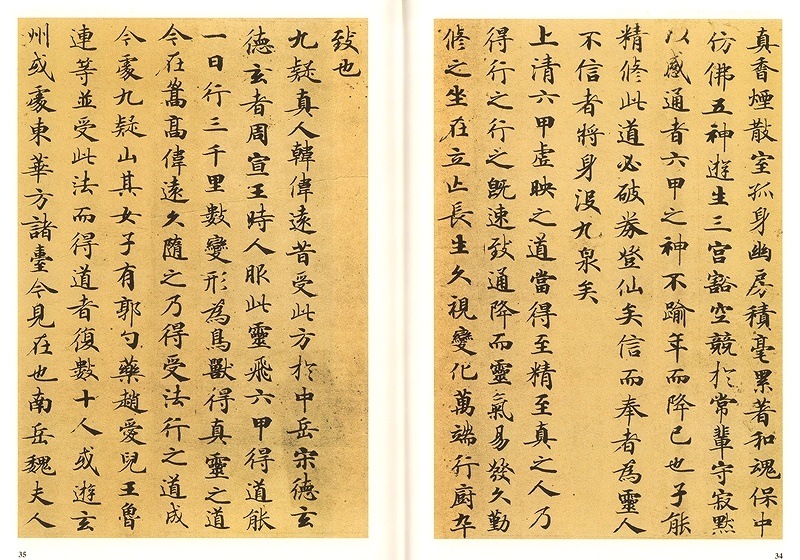 真香煙散室孤身幽房積毫累著和魂保中
仿佛五神遊生三宮豁空競於常輩守寂默
以感通者六甲之神不踰年而降己也子能
精修此道必破券登仙矣信而奉者為靈人
不信者將身沒九泉矣
上清六甲虛映之道當得至精至真之人乃
得行之行之既速致通降而靈氣易發久勤
修之坐在立亡長生久視變化萬端行廚卒
34
致也
九疑真人韓偉遠昔受此方於中岳宋德玄
德玄者周宣王時人服此靈飛六甲得道能
一日行三千里數變形為鳥獸得真靈之道
今在嵩高偉遠久隨之乃得受法行之道成
今處九疑山其女子有郭勺藥趙愛兒王魯
連等並受此法而得道者復數十人或遊玄
州或處東華方諸臺今見在也南岳魏夫人
35